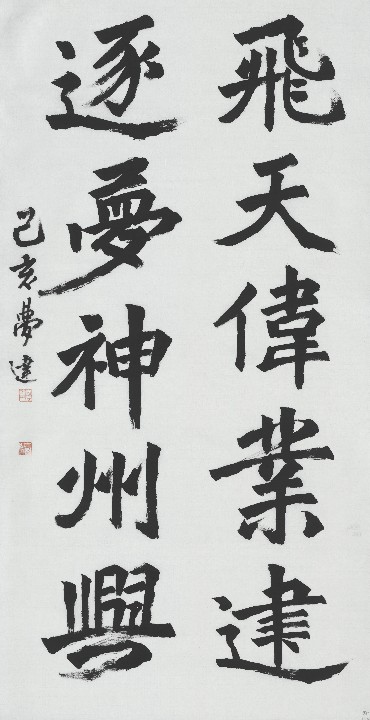 飛天偉業建
逐夢神州興
己亥夢建